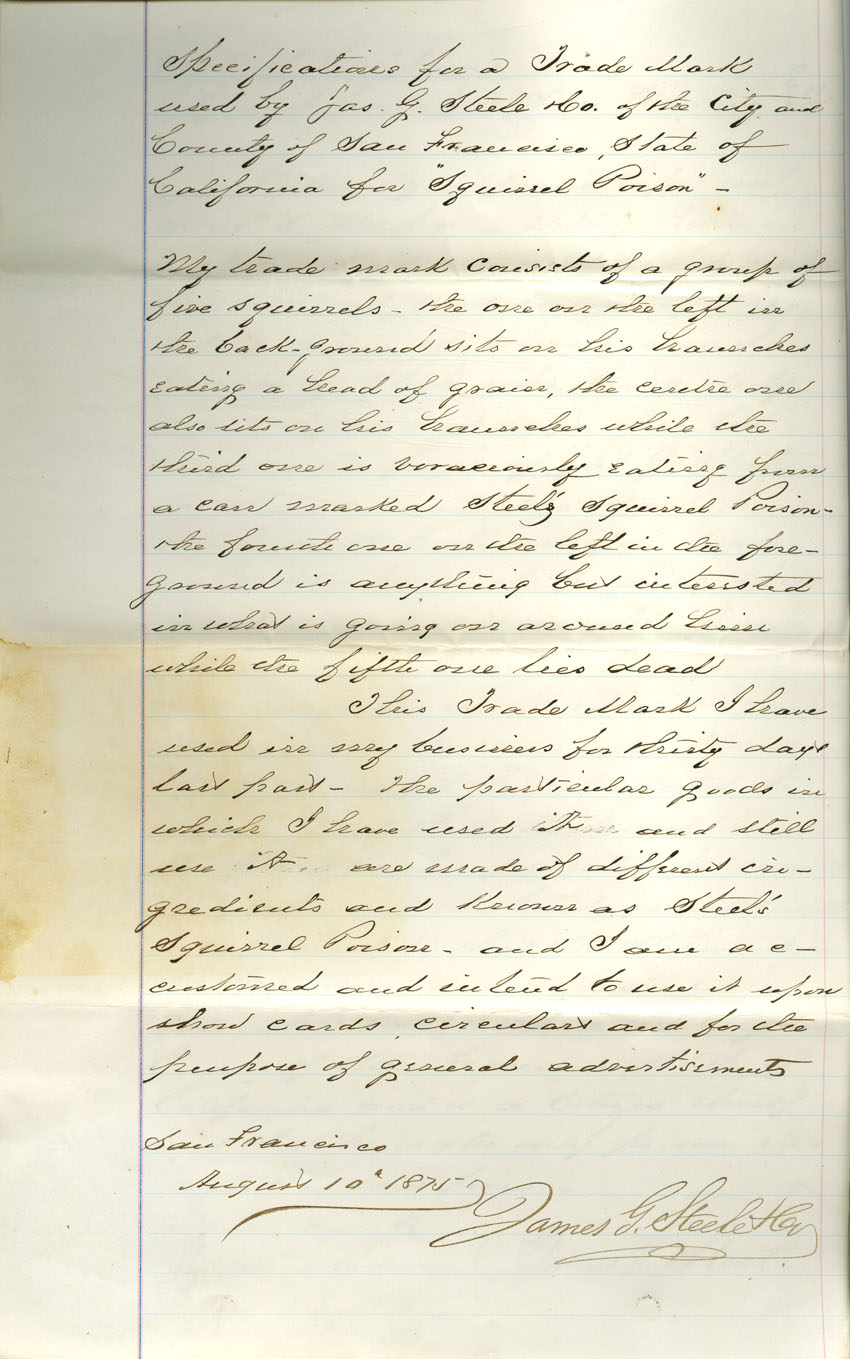 Specifications for a Trade Mark
used by Jas. G. Steele & Co. of the City and
County of San Francisco, State of
California for "Squirrel Poison" -
My trade mark consists of a group of
five squirrels - the one on the left in
the back-ground sits on his haunches
eating a head of grain, the centre one
also sits on his haunches while the
third one is voraciously eating from
a can marked Steele's Squirrel Poison -
the fourth one on the left in the fore-
ground is anything but interested
in what is going on around him
while the fifth one lies dead
This Trade Mark I have
used in my business for thirty days
last past - the particular goods in
which I have used it and still
use it are made of different in-
gredients and known as Steel's
Squirrel Poison - and I am ac-
customed and intend to use it upon
show cards, circulars and for the
purpose of general advertisements
San Francisco
August 10th 1875
James G. Steele & Co